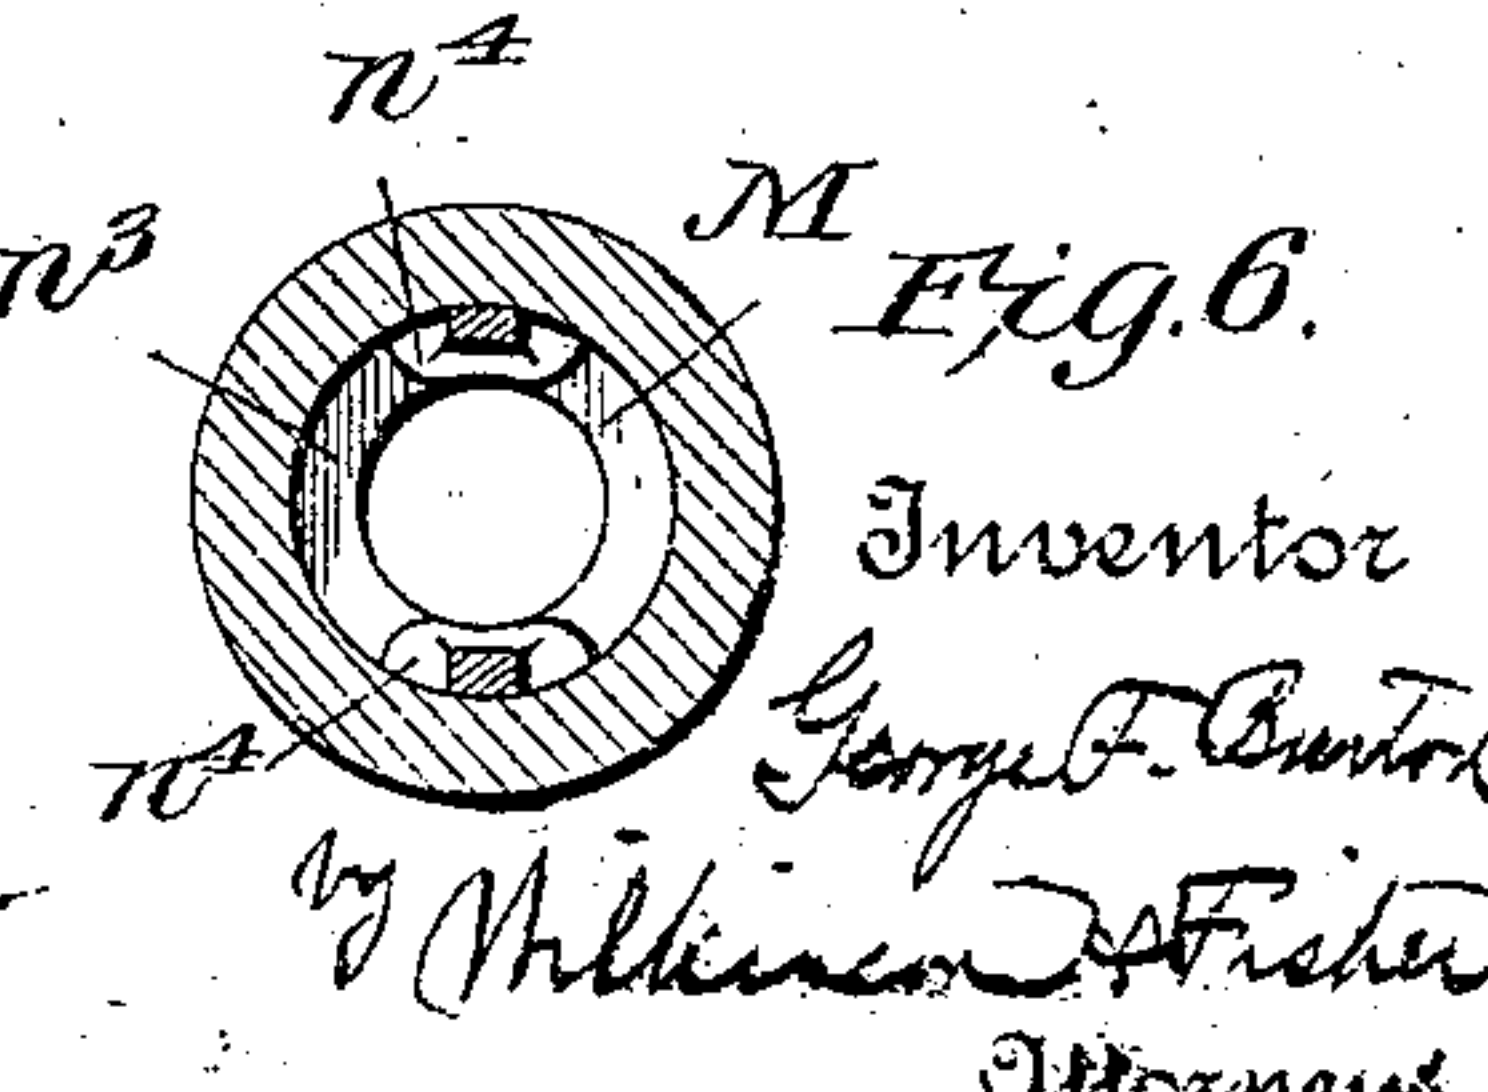 n⁴
M
n³
Fig. 6.
Inventor
George F. Burton
n⁴
by Wilkinson & Fisher
Attorneys